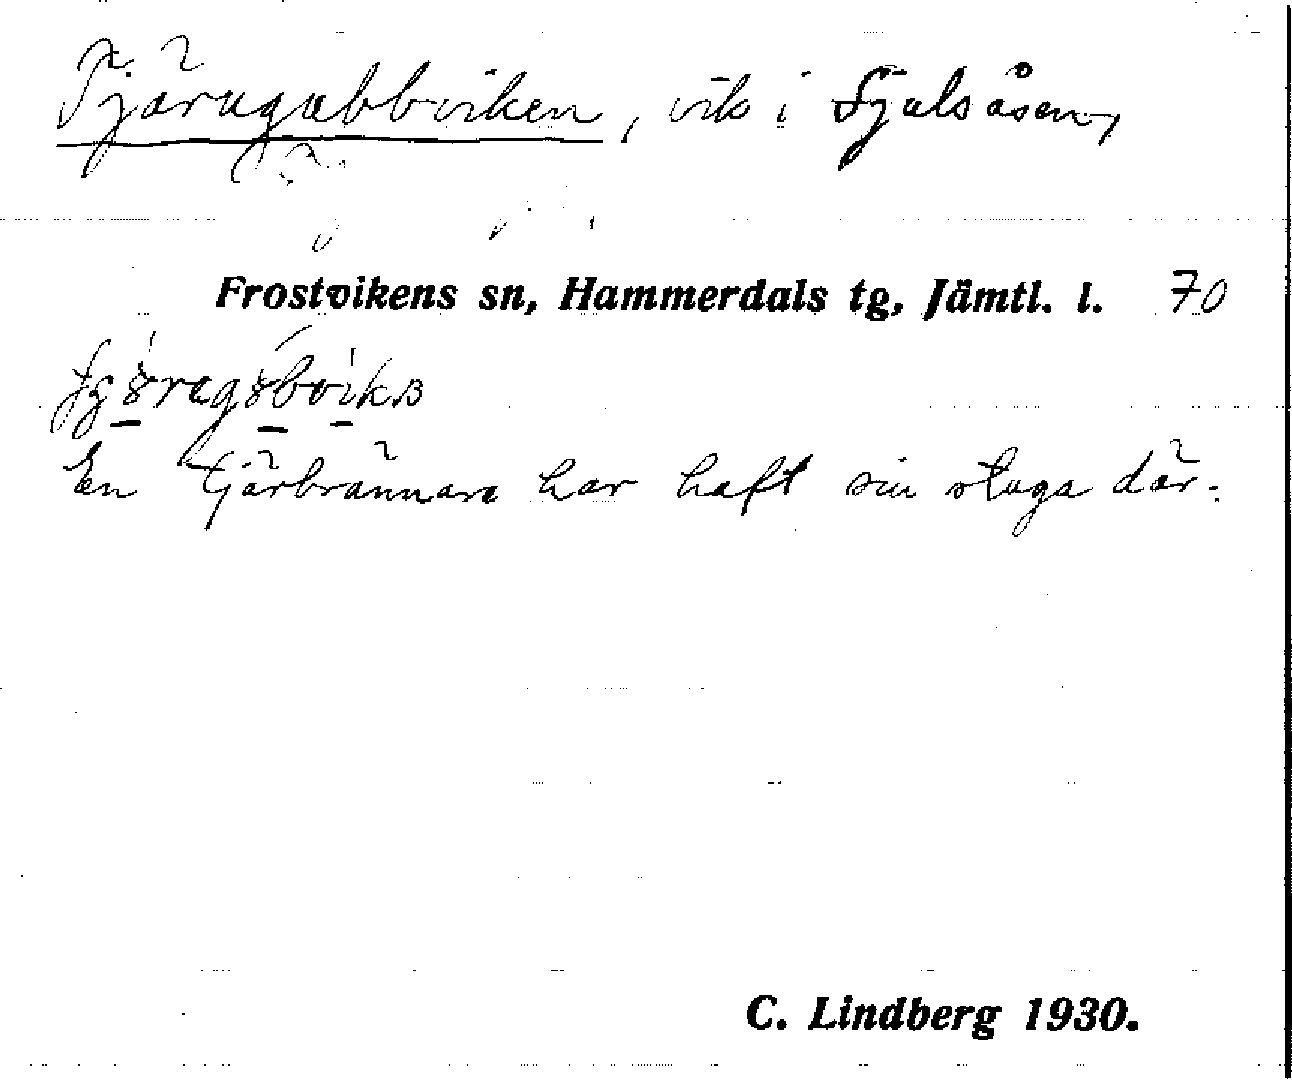 Tjärugubbviken, vik i Sjulsåsen,
Frostvikens sn, Hammerdals tg, Jämtl. l. 70
En tjärbrännare har haft sin stuga där.
C. Lindberg 1930.